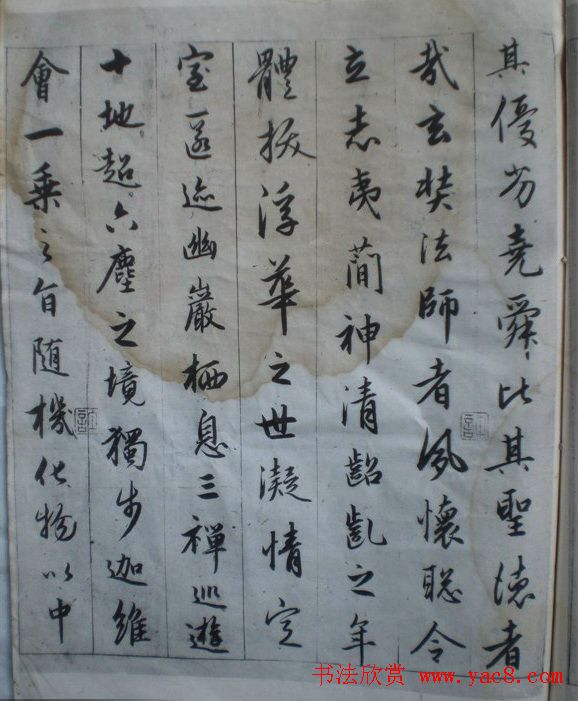 其優劣堯舜比其聖德者
哉玄奘法師者夙懷聰令
立志夷蕳神清齠齔之年
體拔浮華之世凝情定
室匿迹幽巖栖息三禪巡遊
十地超六塵之境獨步迦維
會一乘之旨随機化物以中
书法欣赏 www.yac8.com